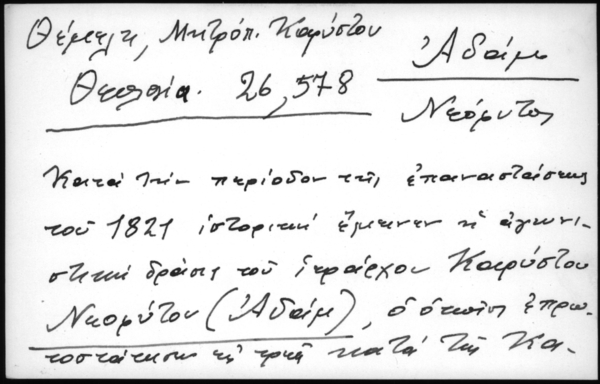 Θέμελη, Μητρόπ. Καρύστου
Ἀδάμ
Θεολογία. 26, 578
Νεόφυτος
Κατά τήν περίοδον τῆς ἐπαναστάσεως
τοῦ 1821 ἱστορική ἔμεινεν ἡ ἀγωνι-
στική δράσις τοῦ ἱεράρχου Καρύστου
Νεοφύτου (Ἀδάμ), ὁ ὁποῖος ἐπρω-
τοστάτησεν κατά τῆς Κα-